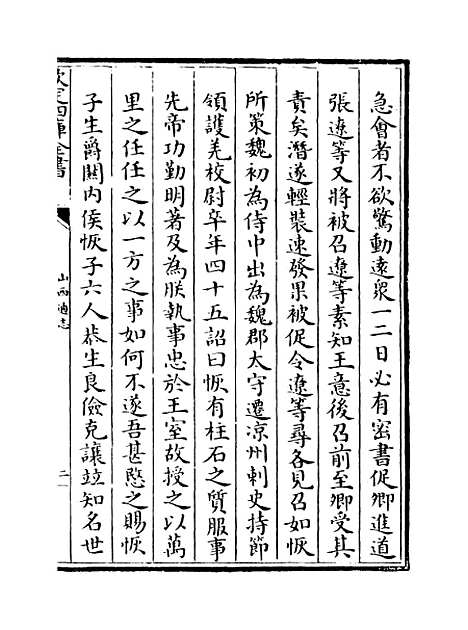 急會者不欲驚動遠衆一二日必有密書促卿進道
張遼等又將被召遼等素知王意後召前至卿受其
責矣潛遂輕裝速發果被促令遼等尋各見召如恢
所策魏初為侍中出為魏郡太守遷凉州刺史持節
領護羌校尉卒年四十五詔曰恢有柱石之質服事
先帝功勤明著及為朕執事忠於王室故授之以萬
里之任任之以一方之事如何不遂吾甚愍之賜恢
子生爵關內侯恢子六人恭生良儉克讓竝知名世
欽定四庫全書
山西通志